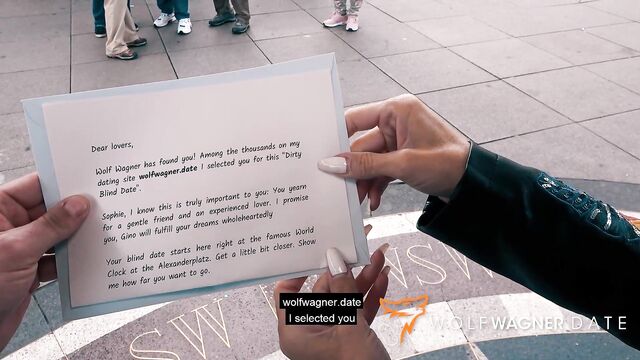 Dear lovers,
Wolf Wagner has found you! Among the thousands on my
dating site wolfwagner.date I selected you for this "Dirty
Blind Date".
Sophie, I know this is truly important to you: You yearn
for a gentle friend and an experienced lover. I promise
you, Gino will fulfill your dreams wholeheartedly
Your blind date starts here right at the famous World
Clock at the Alexanderplatz. Get a little bit closer. Show
me how far you want to go.
SW
SSW
wolfwagner.date
I selected you
WOLFWAGNER.DATE